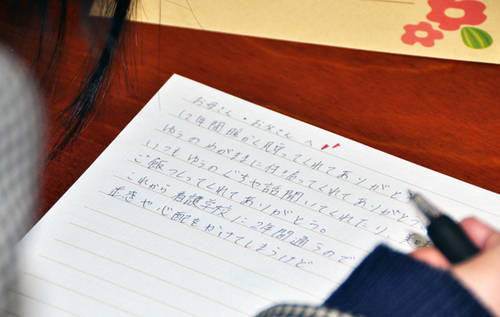 お母さん・お父さんへ
12年間温かく見守ってくれてありがとう
ゆうのわがままに付き合ってくれてありがとう。
いつもゆうのぐちや話聞いてくれたり、
ご飯つくってくれてありがとう。
これから看護学校に2年間通うので
迷惑や心配をかけてしまうけど